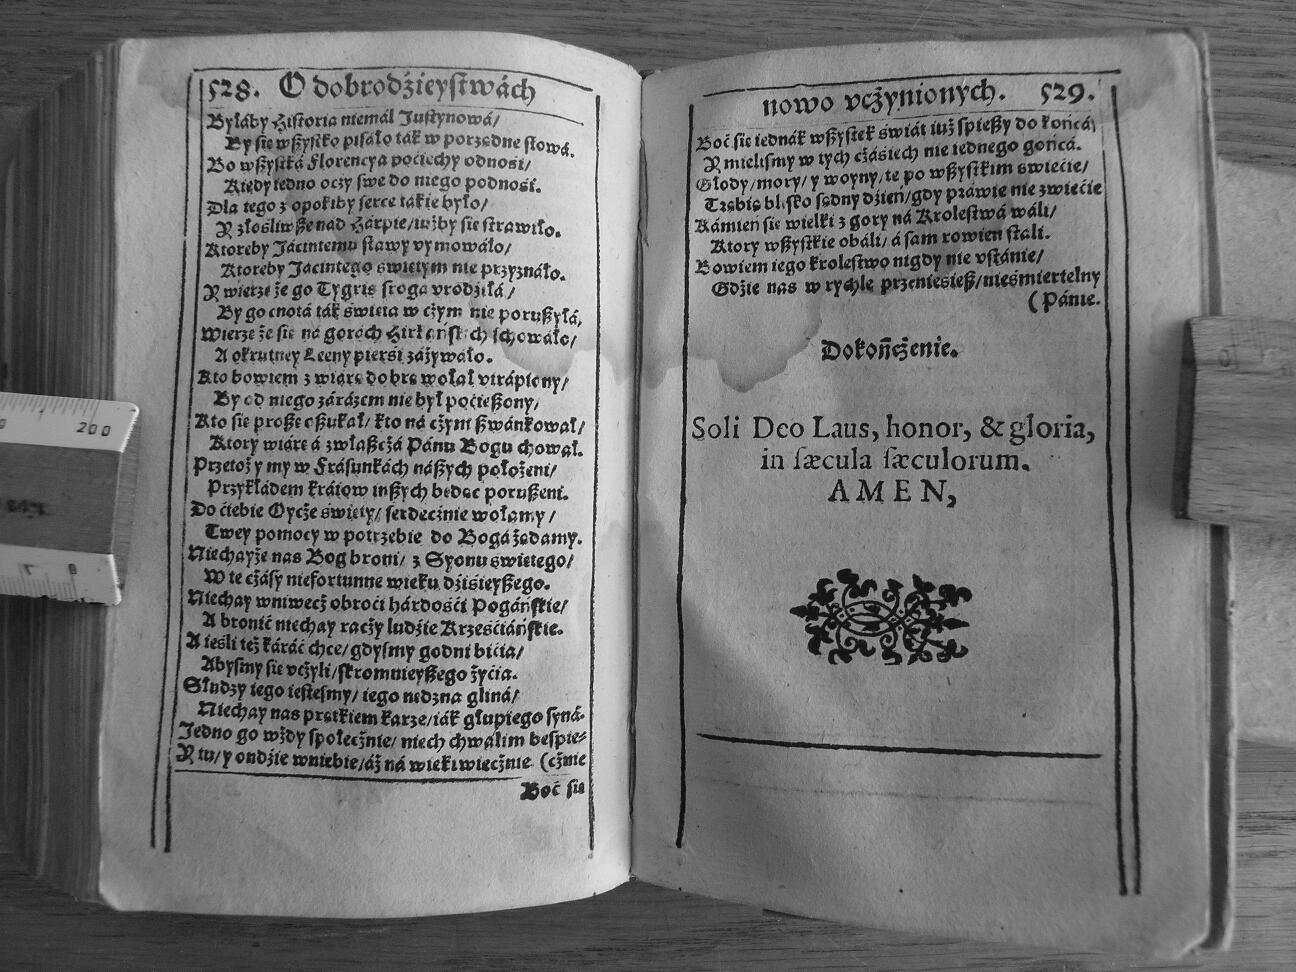 528. O dobrodźieystwách
Byłáby Historia niemál Justynowá/
By sie wszystko pisáło ták w porządne słowá.
Bo wszystká Florencya poćiechy odnośi/
Kiedy iedno oczy swe do niego podnośi.
Dla tego z opoki by serce tákie było/
Y złośliwsze nad Hárpie/iużby sie strawiło.
Ktoreby Jácintemu sławy vymowáło/
Ktoreby Jacintego świętym nie przyznáło.
Y wierzę że go Tygris sroga vrodźiłá/
By go cnotá ták święta w czym nie poruszyłá,
Wierzę że sie ná gorách Hirkáńskich chowáło/
A okrutney Leeny pierśi záżywało.
Kto bowiem z wiárą dobrą wołał vtrapiony/
By od niego zárázem nie był poćieszony/
Kto sie proszę oszukał/ kto ná czym szwánkował/
Ktory wiárę á zwłaszczá Pánu Bogu chował.
Przetoż y my w Frásunkách nászych położeni/
Przykłádem kráiow inszych będąc poruszeni.
Do ćiebie Oycże święty/ serdecznie wołamy/
Twey pomocy w potrzebie do Bogá żądamy.
Niechayże nas Bog broni/ z Syonu świętego/
W te czásy niefortunne wieku dźiśieyszego.
Niechay wniwecz obroći hárdośći Pogáńskie/
A bronić niechay raczy ludźie Krześćiáńskie.
A ieśli też káráć chce/gdysmy godni bićia/
Abysmy sie vczyli/skromnieyszego życia.
Słudzy iego iestesmy/ iego nędzna gliná/
Niechay nas prętkiem karze/iák głupiego syná.
Jedno go wżdy społecznie/ niech chwalim bespie⸗
Y tu/y ondźie w niebie/áż ná wieki wiecznie (cznie
Boć sie
nowo vczynionych. 529.
Boć sie iednák wszystek świát iuż spieszy do końcá/
Y mielismy w tych czásiech nie iednego gońca.
Głody/mory/ y woyny/te po wszystkim świecie/
Trąbią blisko sądny dźień/gdy prawie nie zwiećie
Kámień sie wielki z gory ná Krolestwá wáli/
Ktory wszystkie obáli/ á sam rowien skáli.
Bowiem iego krolestwo nigdy nie vstánie/
Gdźie nas w rychle przenieśiesz/nieśmiertelny
(Pánie.
Dokończenie.
Soli Deo Laus, honor, & gloria,
in sæcula sæculorum.
AMEN,
200